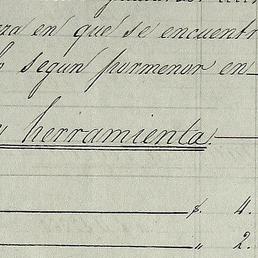 en que se encuentr
segun pormenor en
herramienta.
$ 4.
" 2.